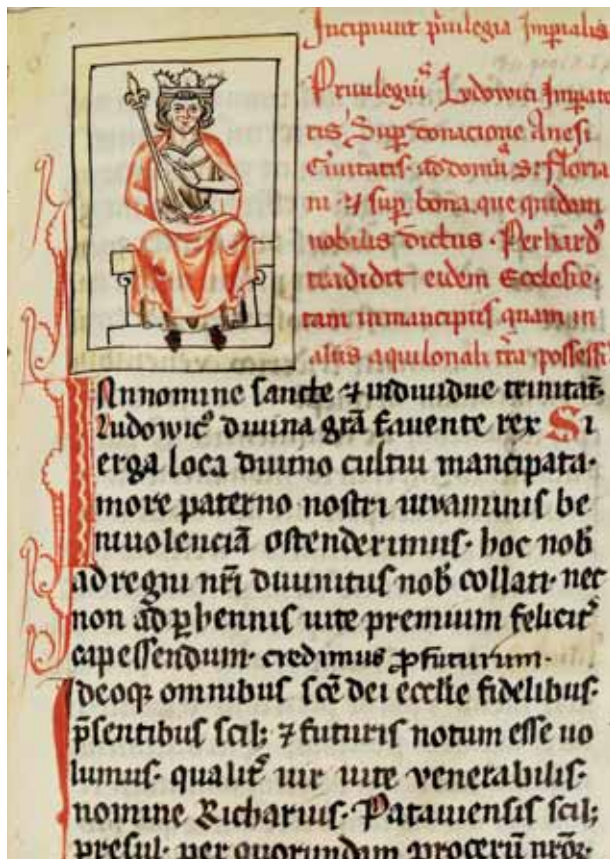 Incipiunt p'uilegia Imp̄ialis
Priuilegiū Lvdowici Impato
ris Sup̱ donacione Anesi
Ciuitatis ad domū s: Floria
ni ⁊ sup̱ bona que quidam
nobilis dictus · Perhard9
tradidit eidem Ecclesie ·
tam in mancipiis quam in
aliis aquilonali t̄ra possess̄
In nomine sancte ⁊ indiuidue trinitat̄·
Ludowic9 diuina gr̄a fauente rex Si
erga loca diuino cultui mancipata·
more paterno nostri iuvaminis be
niuolenciā ostenderimus· hoc nob̄
ad regni nr̄i diuinitus nob̄ collati· nec
non ad p̱hennis uite premium felicit̄
capessendum· credimus ꝓfuturum·
deoqꝫ omnibus sc̄e dei eccl̄ie fidelibus·
p̄sentibus scil; ⁊ futuris notum esse uo
lumus· qualit̄ uir uite venerabilis·
nomine Richarius· Patauiensis scil;
presul· per quorundam procerū nr̄oꝝ·